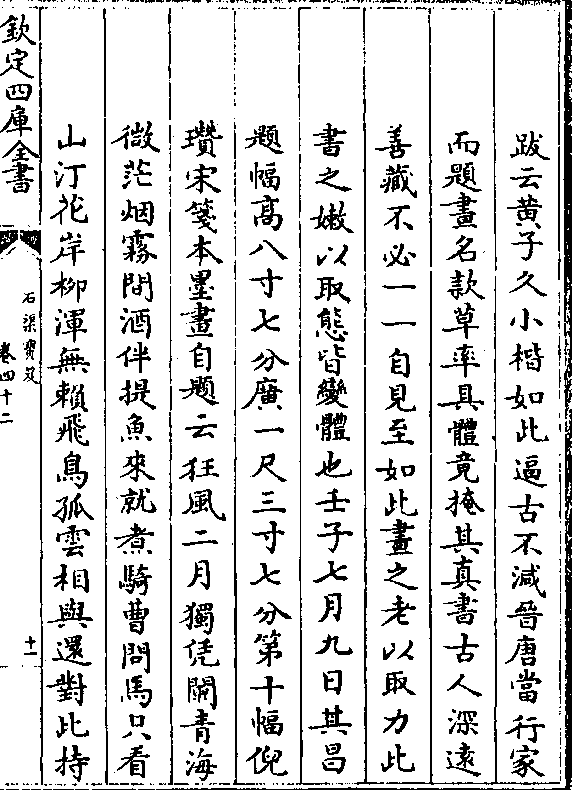 跋云黄子久小楷如此逼古不減晉唐當行家
而題畫名款草率具體竟掩其真書古人深遠
善藏不必一一自見至如此畫之老以取力此
書之嫩以取態皆變體也壬子七月九日其昌
題幅高八寸七分廣一尺三寸七分第十幅倪
瓚宋箋本墨畫自題云狂風二月獨凭闌青海
微茫烟霧間酒伴提魚來就煮騎曹問馬只看
山汀花岸柳渾無賴飛鳥孤雲相與還對此持
欽定四庫全書
石渠寶笈
卷四十二
十一